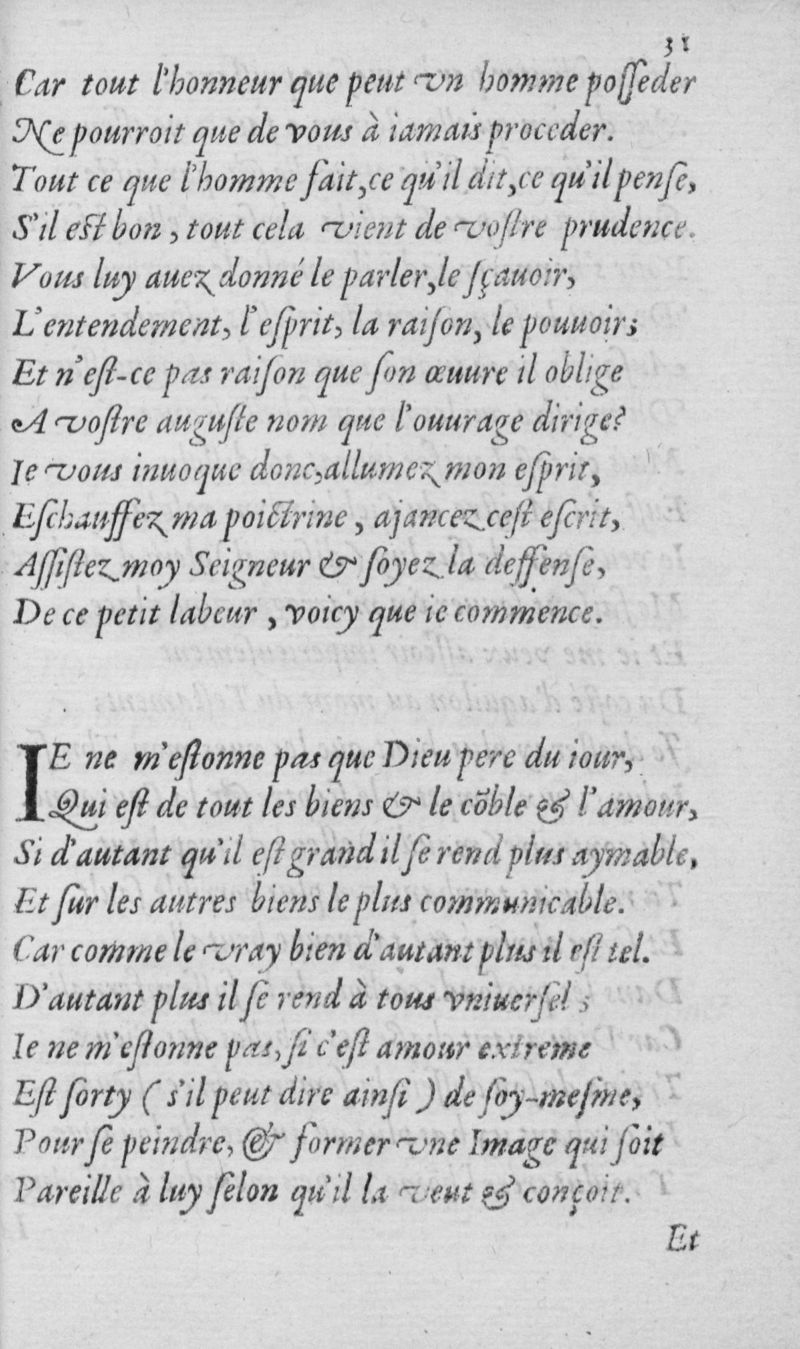 31
Car tout l'honneur que peut vn homme poſſeder
Ne pourroit que de vous à iamais proceder.
Tout ce que l'homme fait, ce qu'il dit, ce qu'il penſe,
S'il eſt bon, tout cela vient de voſtre prudence.
Vous luy auez donné le parler, le ſçauoir,
L'entendement, l'eſprit, la raiſon, le pouuoir;
Et n'eſt-ce pas raiſon que ſon œuure il oblige
A voſtre auguſte nom que l'ouurage dirige?
Ie vous inuoque donc, allumez mon eſprit,
Eſchauffez ma poictrine, ajancez ceſt eſcrit,
Aſſiſtez moy Seigneur & ſoyez la deffenſe,
De ce petit labeur, voicy que ie commence.
IE ne m'eſtonne pas que Dieu pere du iour,
Qui eſt de tout les biens & le cõble & l'amour,
Si d'autant qu'il eſt grand il ſe rend plus aymable,
Et ſur les autres biens le plus communicable.
Car comme le vray bien d'autant plus il eſt tel.
D'autant plus il ſe rend à tous vniuerſel;
Ie ne m'eſtonne pas, ſi c'eſt amour extreme
Eſt ſorty (s'il peut dire ainſi) de ſoy-meſme,
Pour ſe peindre, & former vne Image qui ſoit
Pareille à luy ſelon qu'il la veut & conçoit.
Et